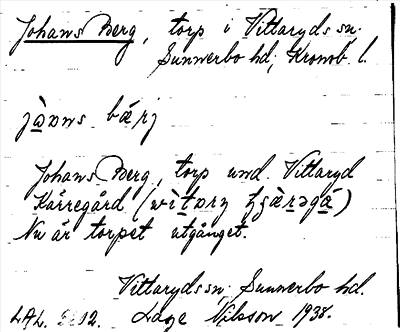 Johans Berg, torp i Vittaryds sn.
Sunnerbo hd; Kronob. l.
Johans Berg, torp und. Vittaryd
Kärregård (
Nu är torpet utgånget.
Vittaryds sn; Sunnerbo hd.
LAL. Lage Nilsson 1938.